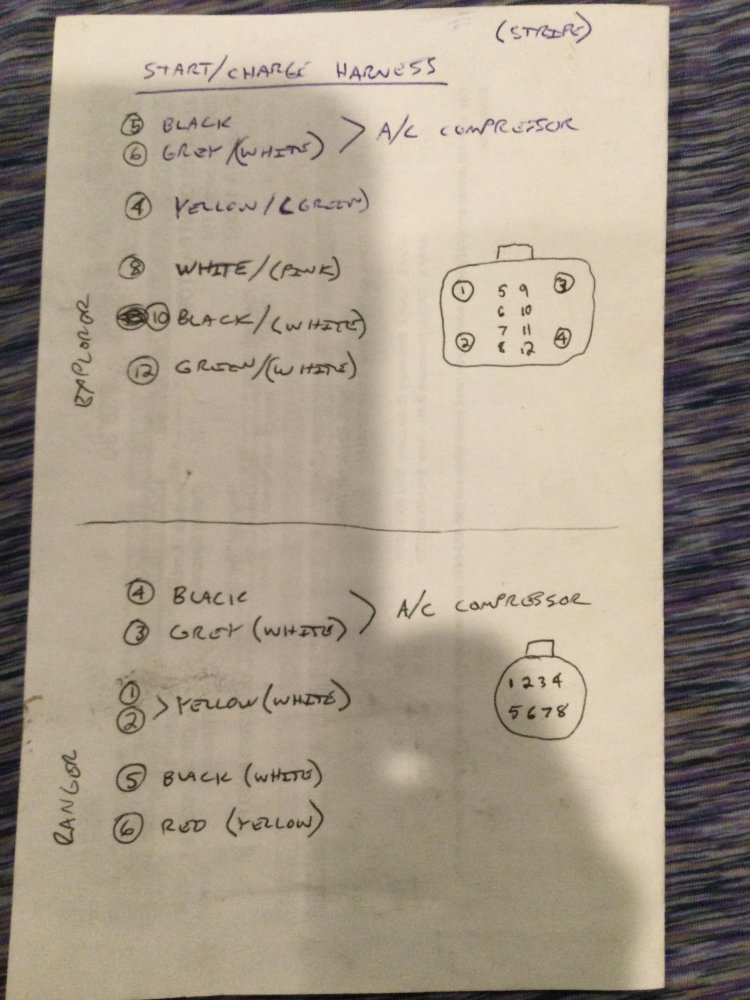 (STRIPE)
START/CHARGE HARNESS
5 BLACK
6 GREY/(WHITE) > A/C COMPRESSOR
4 YELLOW/(GREEN)
8 WHITE/(PINK)
10 BLACK/(WHITE)
12 GREEN/(WHITE)
EXPLOROR
1 5 9 3
6 10
7 11
2 8 12 4
4 BLACK
3 GREY (WHITE) > A/C COMPRESSOR
1
2 > YELLOW (WHITE)
5 BLACK (WHITE)
6 RED (YELLOW)
RANGOR
1 2 3 4
5 6 7 8